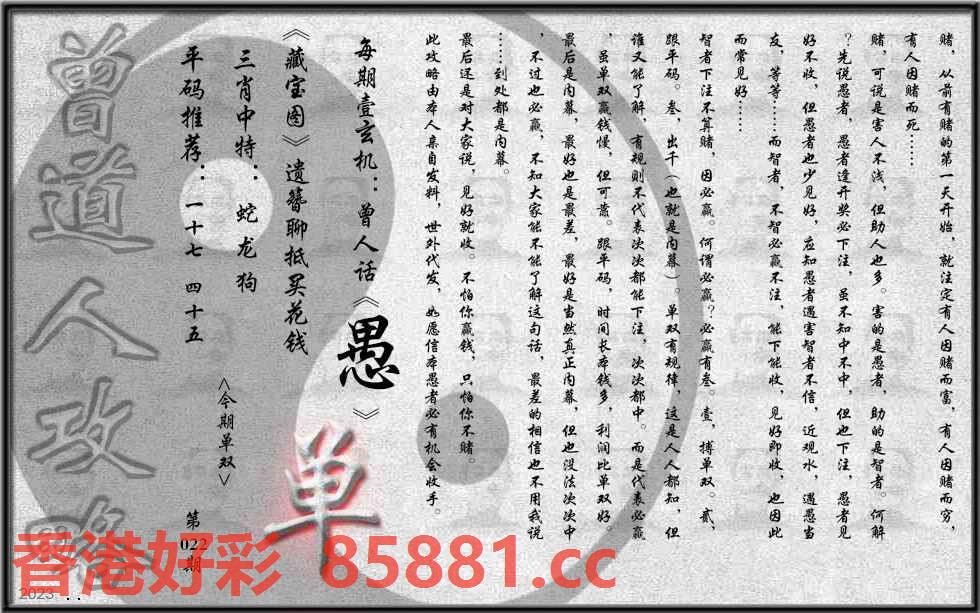 赌，从前有赌的第一天开始，就注定有人因赌而富，有人因赌而穷，
有人因赌而死……
赌，可说是害人不浅，但助人也多。害的是愚者，助的是智者。何解
？先说愚者，愚者逢开奖必下注，虽不知中不中，但也下注，愚者见
好不收，但愚者也少见好，应知愚者遇害智者不信，近观水，遇愚当
友，等等……而智者，不智必赢不注，能下能收，见好即收，也因此
而常见好……
智者下注不算赌，因必赢。何谓必赢？必赢有叁。壹，搏单双。贰，
跟平码。叁，出千（也就是内幕）。单双有规律，这是人人都知，但
谁又能了解，有规则不代表次次都能下注，次次都中。而是代表必赢
，虽单双赢钱慢，但可靠。跟平码，时间长本钱多，利润比单双好。
最后是内幕，最好也是最差，最好是当然真正内幕，但也没法次次中
，不过也必赢，不知大家能不能了解这句话，最差的相信也不用我说
……到处都是内幕。
最后还是对大家说，见好就收。不怕你赢钱，只怕你不赌。
此攻略由本人亲自发料，世外代发，如愿信本愚者必有机会收手。
每期壹玄机：曾人话《愚》
《藏宝图》遗簪聊抵买花钱
单
三肖中特：蛇龙狗
<今期单双>
平码推荐：一十七 四十五
第022期
曾道人攻略
香港好彩 85881.cc
2023